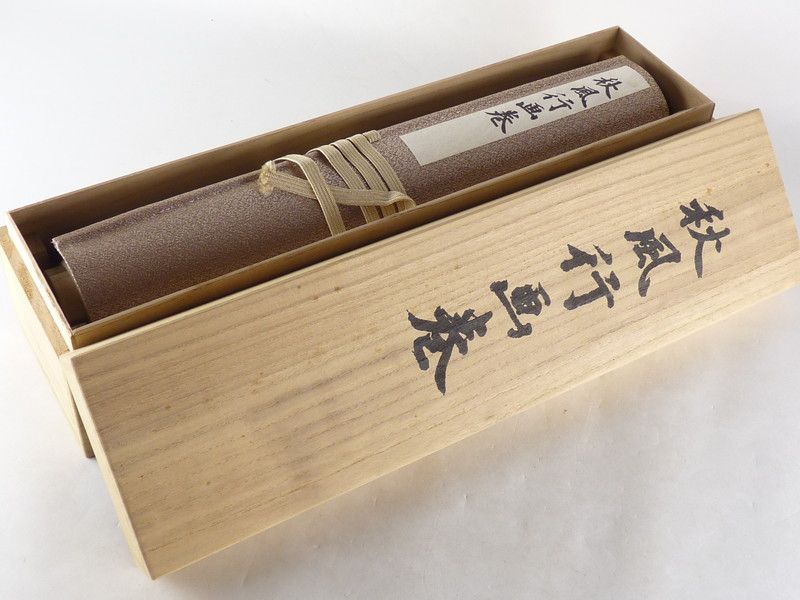 秋風行画巻
秋風行画巻